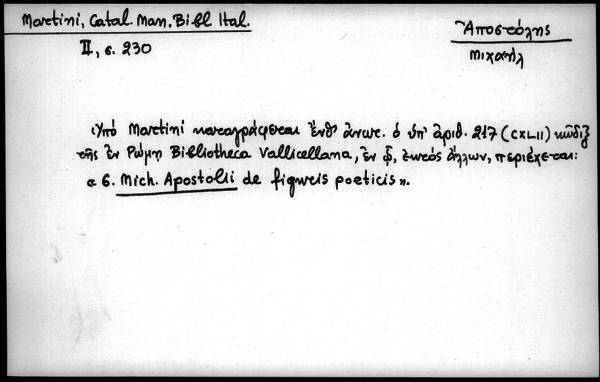 Martini, Catal. Man. Bibl Ital.
II, σ. 230
Ἀποστόλης
Μιχαήλ
Ὑπό Martini καταγράφεται ἔνθ' ἀνωτ. ὁ ὑπ' ἀριθ. 217 (CXLII) κῶδιξ
τῆς ἐν Ρώμῃ Bibliotheca Vallicellana, ἐν ᾧ, ἐκτός ἄλλων, περιέχεται:
« 6. Mich. Apostolii de figuris poeticis».